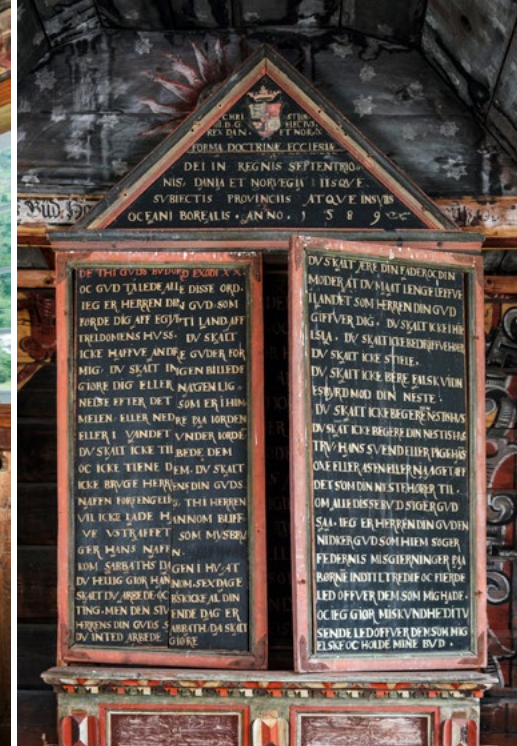 CHRI STIAN
D. G. ELECTUS
REX DAN. ET NORV.
FORMA DOCTRINÆ ECCLESIA
DEI IN REGNIS SEPTENTRIO
NIS, DANIA ET NORVEGIA IISQVE
SVBIECTIS PROVINCIIS ATQVE INSVLIS
OCEANI BOREALIS. ANNO. 1589
Bud.
DE THI GVDS BVDORD EXODI XX
OC GVD TALEDE ALLE DISSE ORD.
IEG ER HERREN DIN GVD SOM
FØRDE DIG AFF EGIPTI LAND AFF
TRELDOMENS HVSS. DV SKALT
ICKE HAFFVE ANDRE GVDER FOR
MIG. DV SKALT INGEN BILLEDE
GIØRE DIG ELLER NAGEN LIG-
NELSE EFTER DET SOM ER I HIM
MELEN ELLER NEDRE PAA IORDEN
ELLER I VANDET VNDER IORDE
DV SKALT ICKE TILBEDE DEM
OC ICKE TIENE DEM. DV SKALT
ICKE BRVGE HERRENS DIN GVDS
NAFFN FORFENGELIG. THI HERREN
VIL ICKE LADE HANNOM BLIFF
VE VSTRAFFET SOM MVSBRV
GER HANS NAFFN.
KOM SABBATHS DAGEN I HV AT
DV HELLIG GIØR HANNOM. SEX DAGE
SKALT DV ARBEDE OC BESKICKE AL DIN
TING. MEN DEN SIVENDE DAG ER
HERRENS DIN GVDS SABBATH. DA SKALT
DV INTED ARBEDE GIØRE
DV SKALT ÆRE DIN FADER OC DIN
MODER AT DV MAAT LENGE LEFFVE
I LANDET SOM HERREN DIN GVD
GIFFVER DIG. DV SKALT ICKE IHIE
LSLA. DV SKALT ICKE BEDRIFFVE HOER
DV SKALT ICKE STIELE.
DV SKALT ICKE BERE FALSK VIDN
ESBYRD MOD DIN NESTE.
DV SKALT ICKE BEGERE NESTIS HVS
DV SKALT ICKE BEGERE DIN NESTIS HVS
TRV HANS SVEND ELLER PIGE HAS
OXE ELLER ASEN ELLER NAAGET AFF
DET SOM DIN NESTE HØRER TIL.
OM ALLE DISSE BVD SIGER GVD
SAA. IEG ER HERREN DIN GVD EN
NIDKER GVD SOM HIEM SØGER
FEDERNIS MISGIERNINGER PAA
BØRNE INDTIL TREDIE OC FIERDE
LED OFFVER DEM SOM MIG HADE.
OC IEG GIØR MISKVNDHED I TV
SENDE LED OFFVER DEM SOM MIG
ELSKE OC HOLDE MINE BVD.